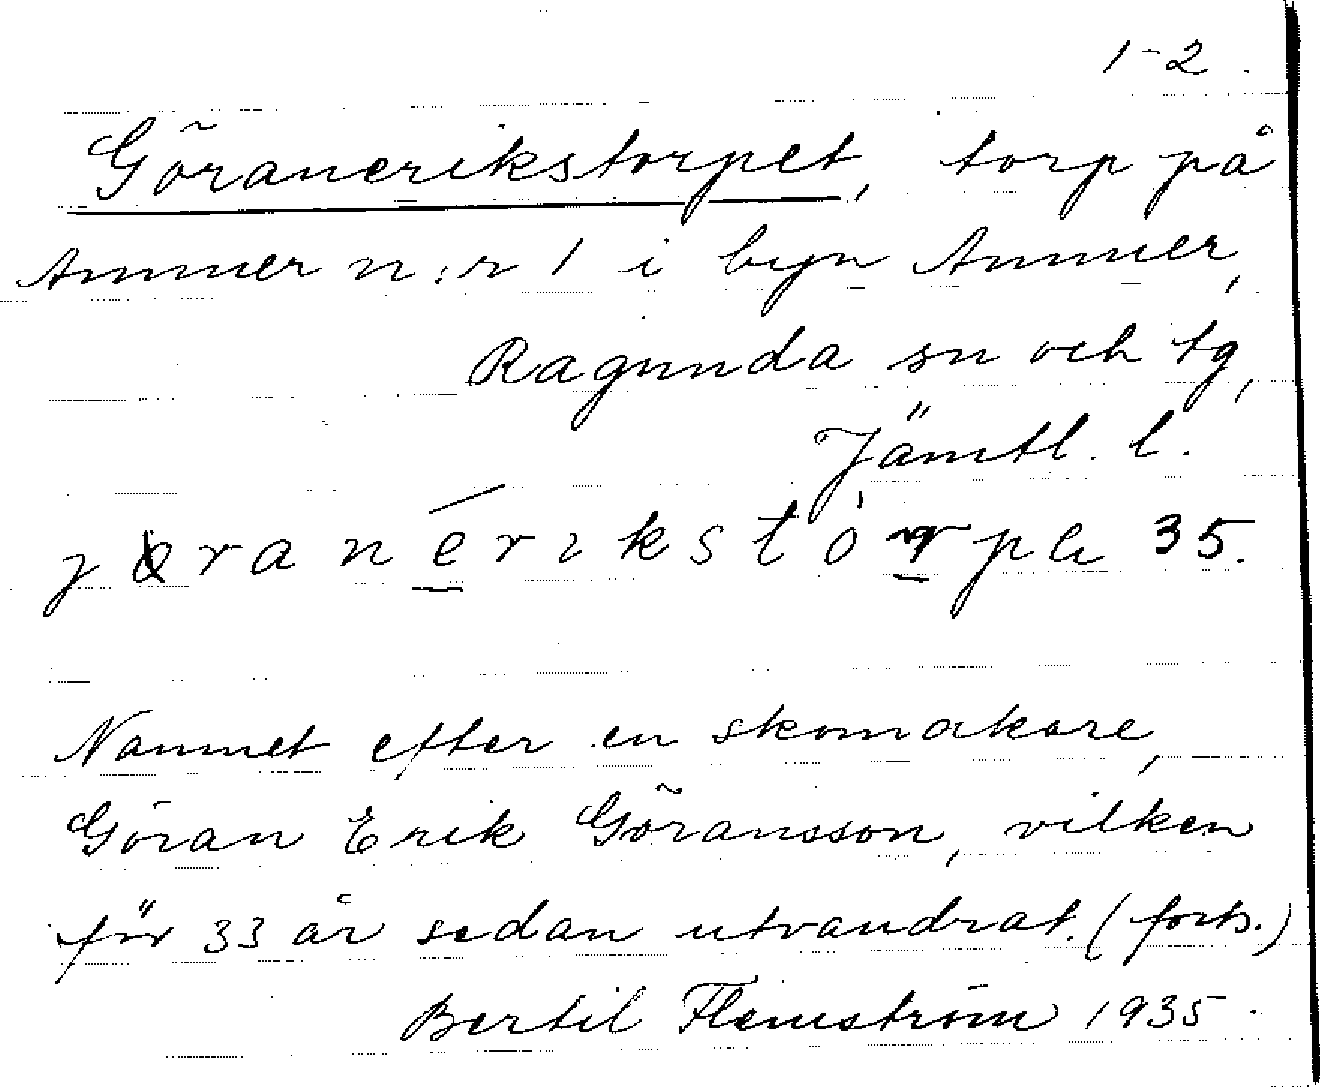 1-2.
Göranerikstorpet, torp på
Ammer n:r 1 i byn Ammer,
Ragunda sn och tg,
Jämtl. l.
35.
Namnet efter en skomakare,
Göran Erik Göransson, vilken
för 33 år sedan utvandrat. (forts.)
Bertil Flemström 1935.